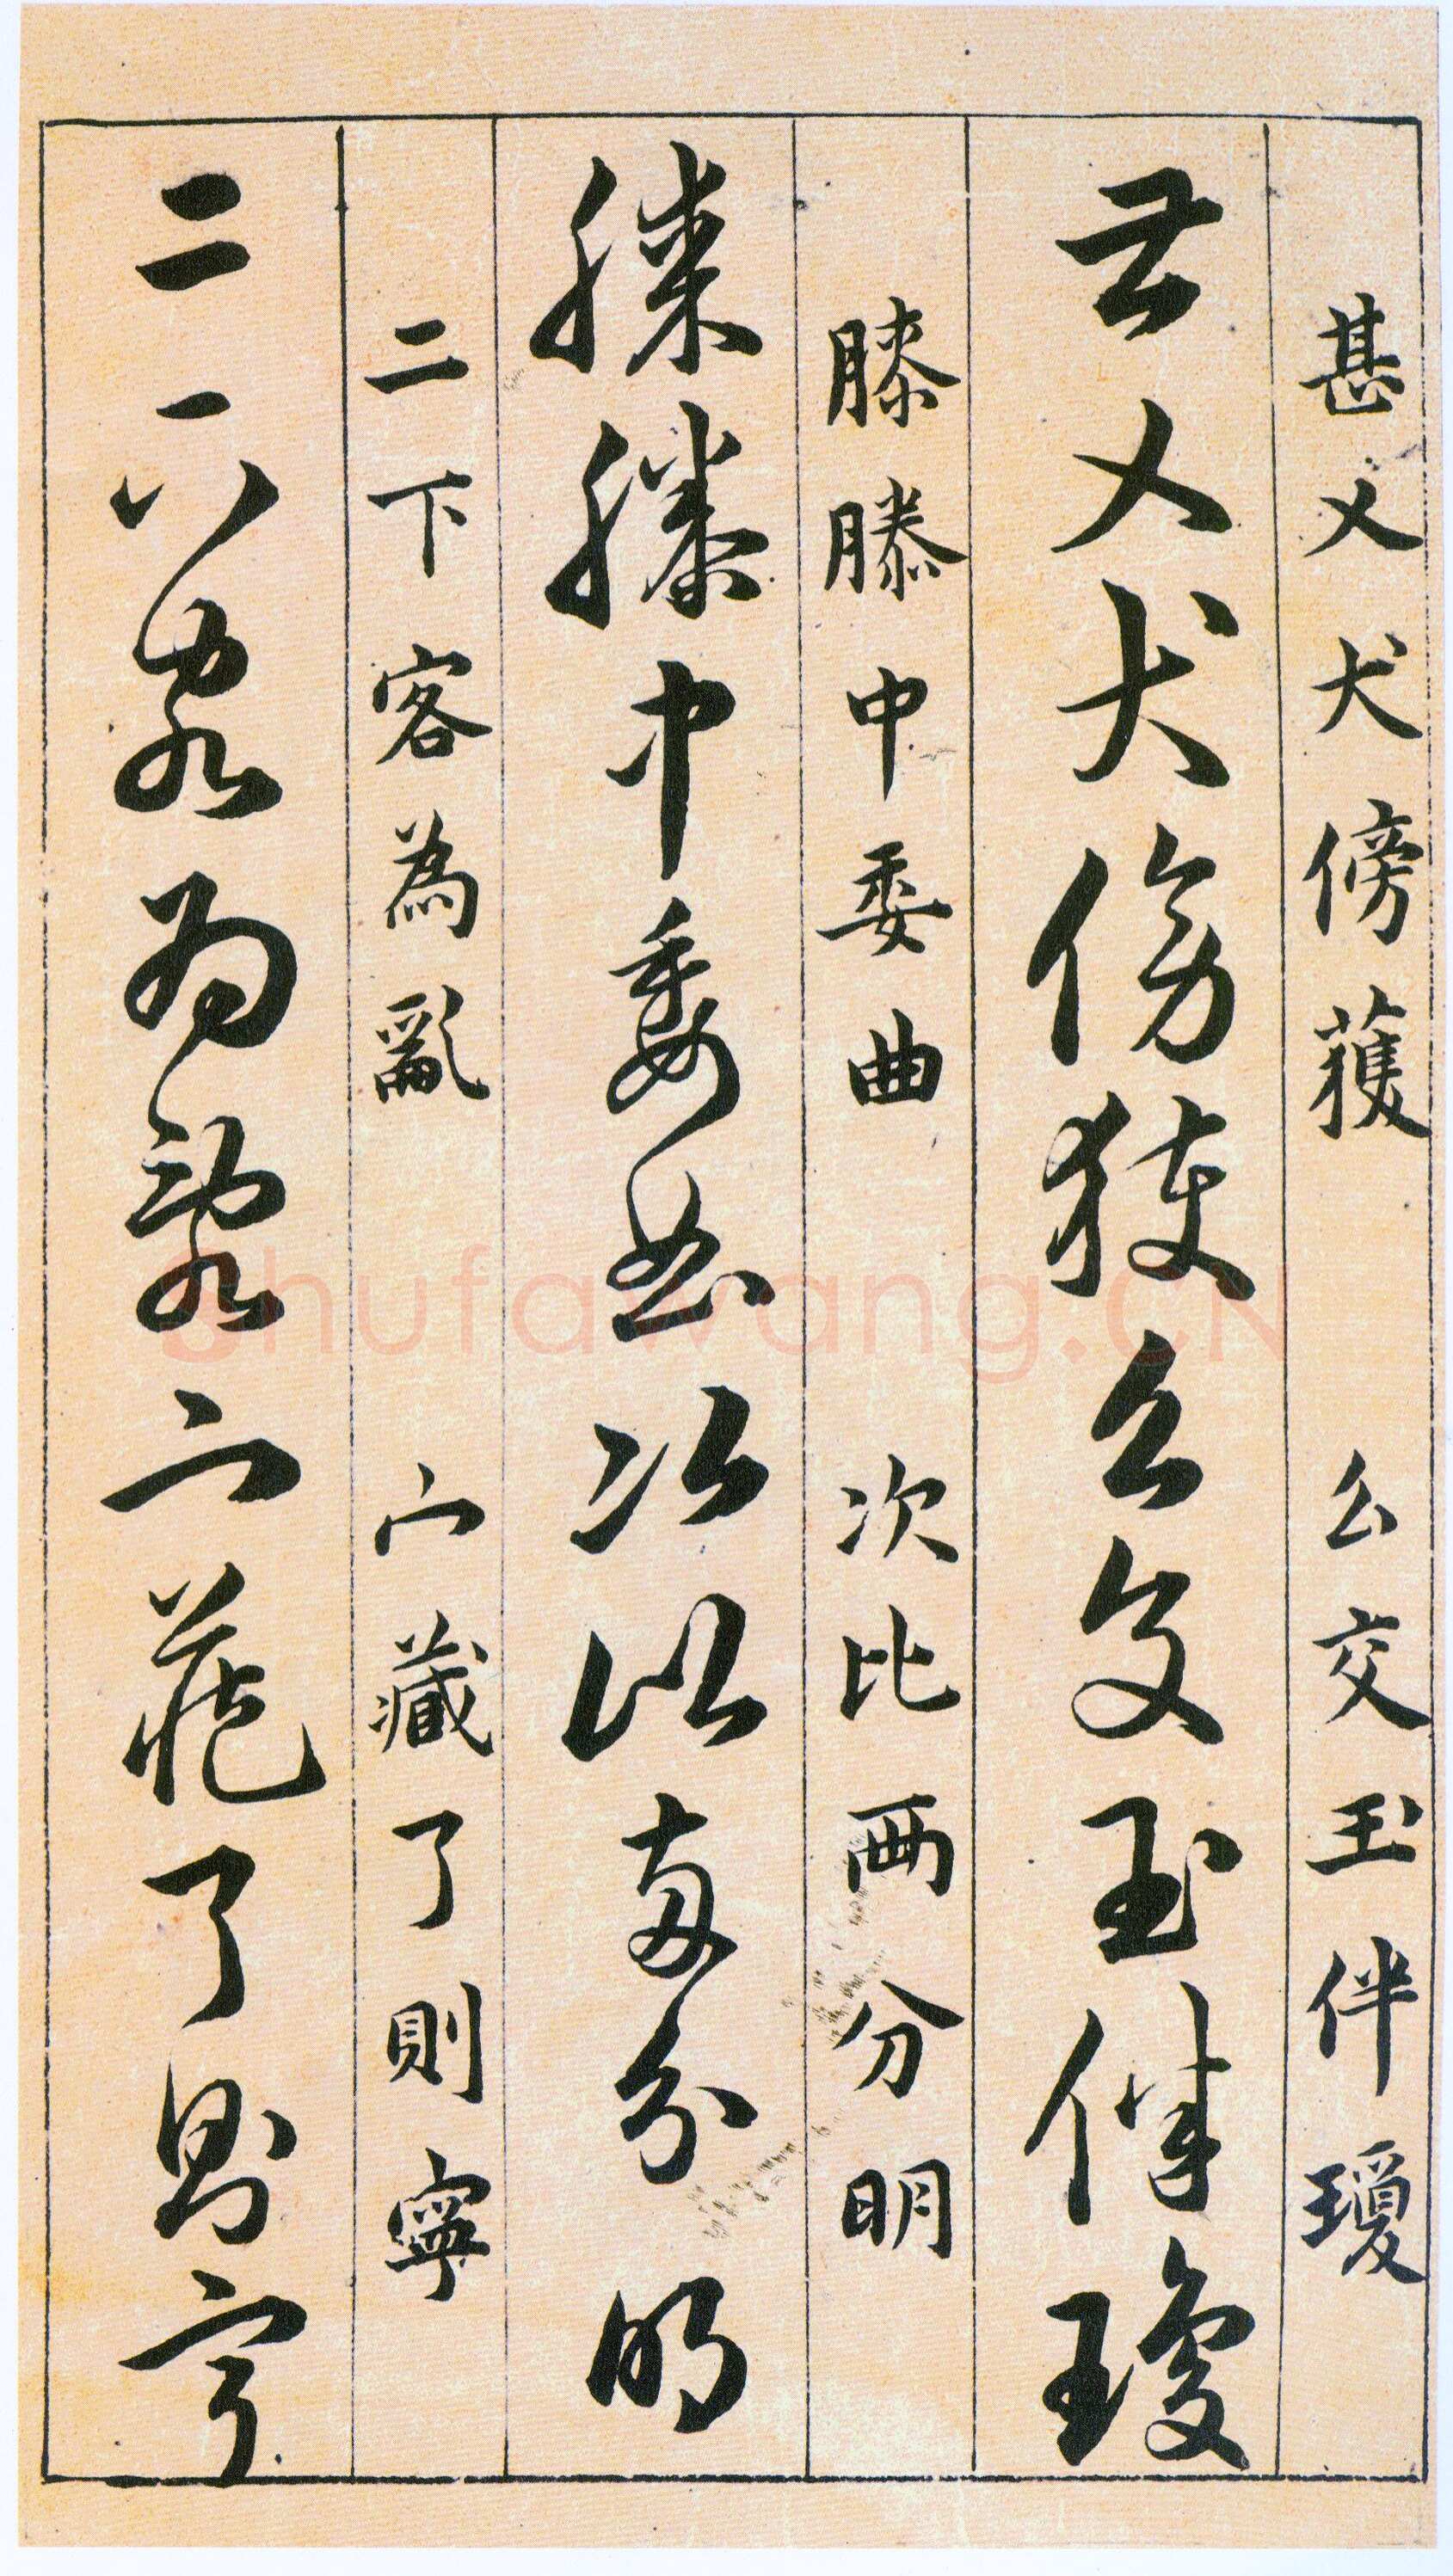 甚乂犬傍獲　么交玉伴瓊
甚乂犬傍獲么交玉伴瓊
膝滕中委曲　次比兩分明
膝滕中委曲次比兩分明
二下客為亂　宀藏了則寧
二下客為亂宀藏了則寧
shufawang.CN